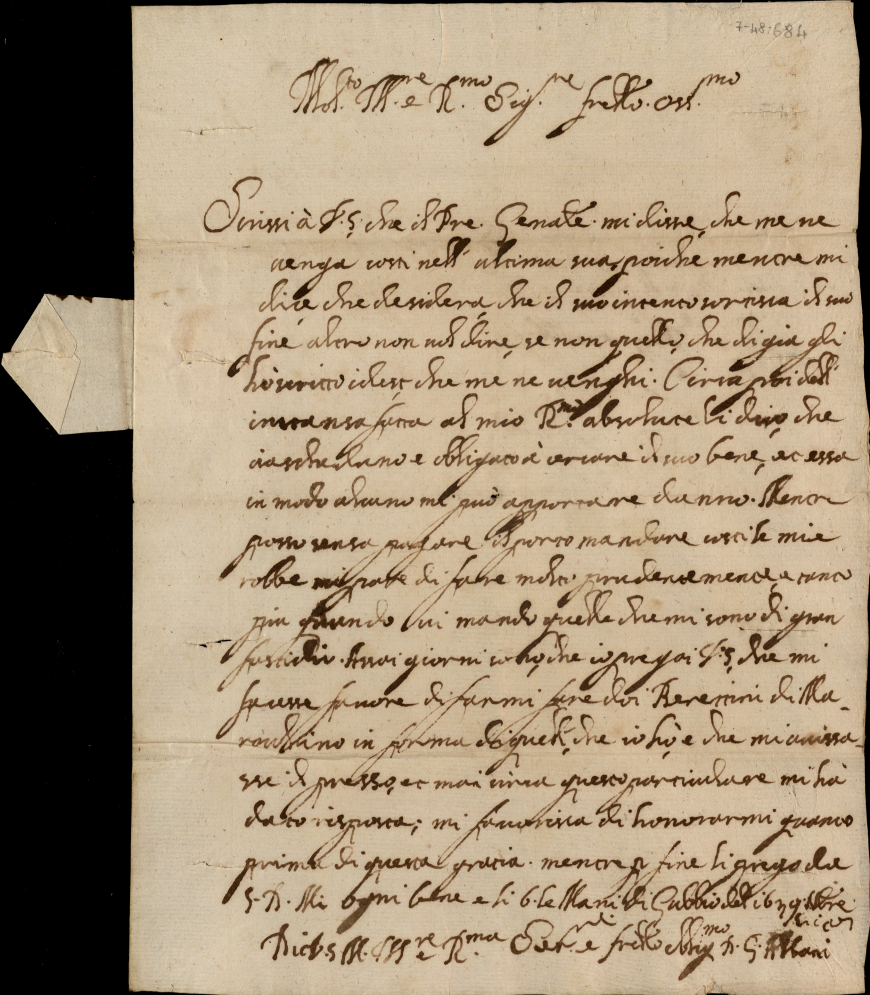 7-48-684
Mol.to Ill.re e R.mo Sig.re fretto. oss.mo
Scrissi à V.S. che il Pre. Zenate. mi disse, che me ne
venga costi nell' ultima sua, poiche mentre mi
dice che desidera, che il suo intento sortisca il suo
fine altro non vol dire, se non quello, che di gia gli
hò scritto idest che me ne venghi. Circa poi dell'
instansa fatta al mio R.mo absolute li dico che
ciascheduno e obligato à cercare il suo bene, et essa
in modo alcuno mi può apportare danno. Mentre
posso senza pagare il porto mandare costi le mie
robbe mi pare di fare molto prudentemente, e tanto
piu quando vi mando quelle che mi sono di gran
fastidio. Assai giorni sono, che io pregai V.S. che mi
facesse favore di farmi fare doi Berettini di Ma-
rochino in forma di quelli, che io hò, e che mi avissa-
sse il presso, et mai circa questo particulare mi hà
dato risposta; mi favorisca di honorarmi quanto
prima di questa gratia. mentre p fine li prego da
S. D. M. ogni bene e li b. le Mani di Gubbio del
Di V.S. M. Ill.re e R.ma fretto oblig.mo Albani